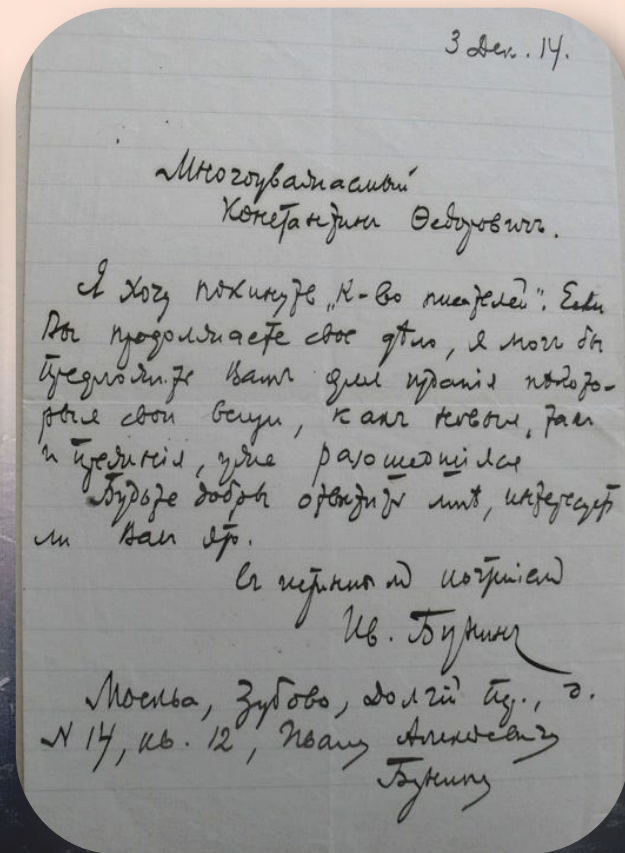 3 Дек. 14.
Многоуважаемый
Константинъ Ѳедоровичъ.
Я хочу покинуть „К-во писателей". Если
Вы продолжаете свое дѣло, я могъ бы
предложить Вамъ для изданія нѣкото-
рыя свои вещи, какъ новыя, такъ
и прежнія, уже разошедшіяся
Будьте добры отвѣтить мнѣ, интересуетъ
ли Васъ это.
Съ истиннымъ почтеніемъ
Ив. Бунинъ
Москва, Зубово, Долгій пер., д.
N 14, кв. 12, Ивану Алексѣевичу
Бунину